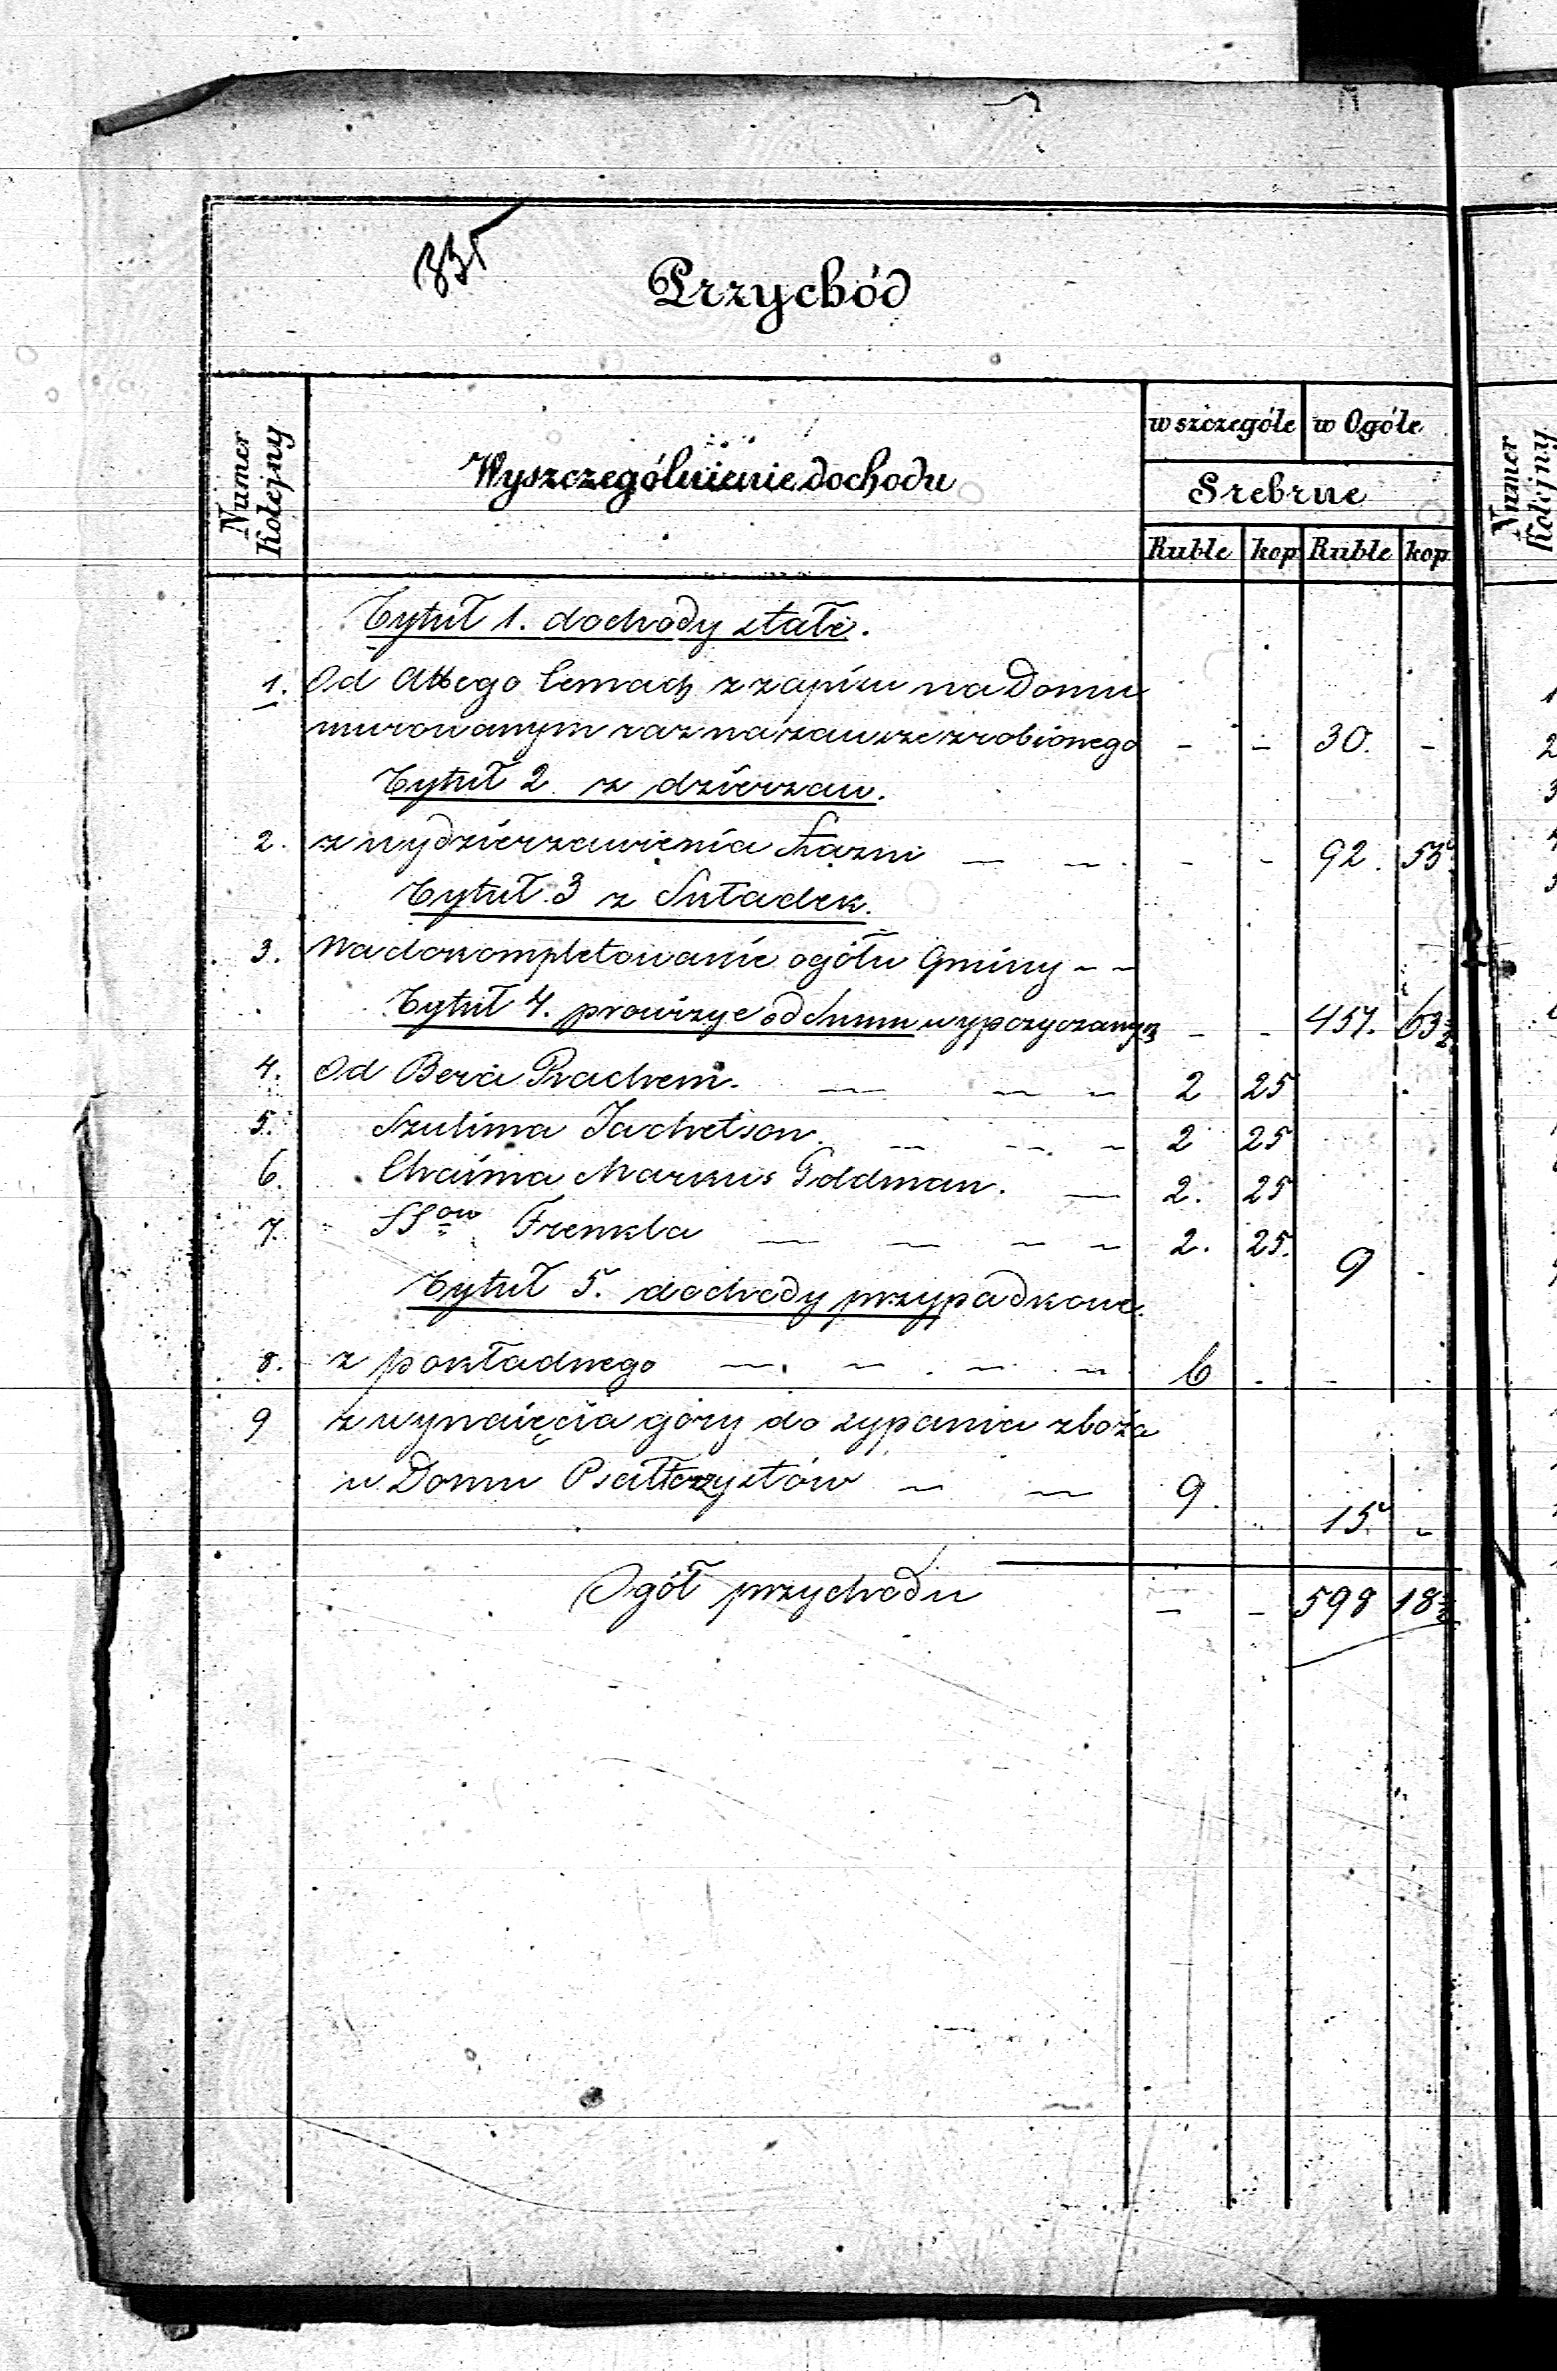 335
Przychód
Numer Kolejny
Wyszczególnienie dochodu
w szczególe w Ogóle
Srebrne
Ruble kop Ruble kop
Tytuł 1. dochody stałe.
1. Od z zapisu na Domu
murowanym raz na zawsze zrobionego - - 30. -
Tytuł 2. z dzierzaw.
2. z wydzierzawienia Łazni - - 92. 55
Tytuł 3 z Składek.
3. Na dokompletowanie ogółu Gminy
Tytuł 4. prowizye od Summ wypozyczanych - - 457. 63½
4. Od Bera 2 25
5. Szulima 2 25
6. Chaima Markus Goldman. 2. 25
7. SSow Frenkla 2. 25. 9
Tytuł 5. dochody przypadkowe.
8. z pokładnego 6 - -
9 z wynaięcia góry do sypania zboża
w Domu Psałterzystów 9. 15. -
Ogół przychodu - - 598 18½
Numer Kolejny